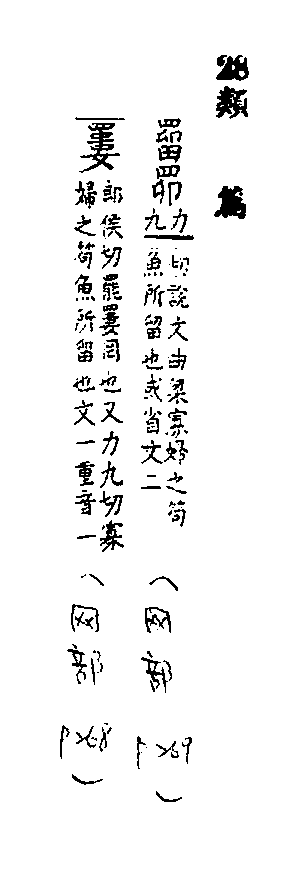 28 類篇
罶𦊑力九
切說文曲梁寡婦之笱
魚所留也或省文二
（网部 P269）
𦌁
郎侯切罷𦌁罔也又力九切寡
婦之笱魚所留也文一重音一
（网部 P268）